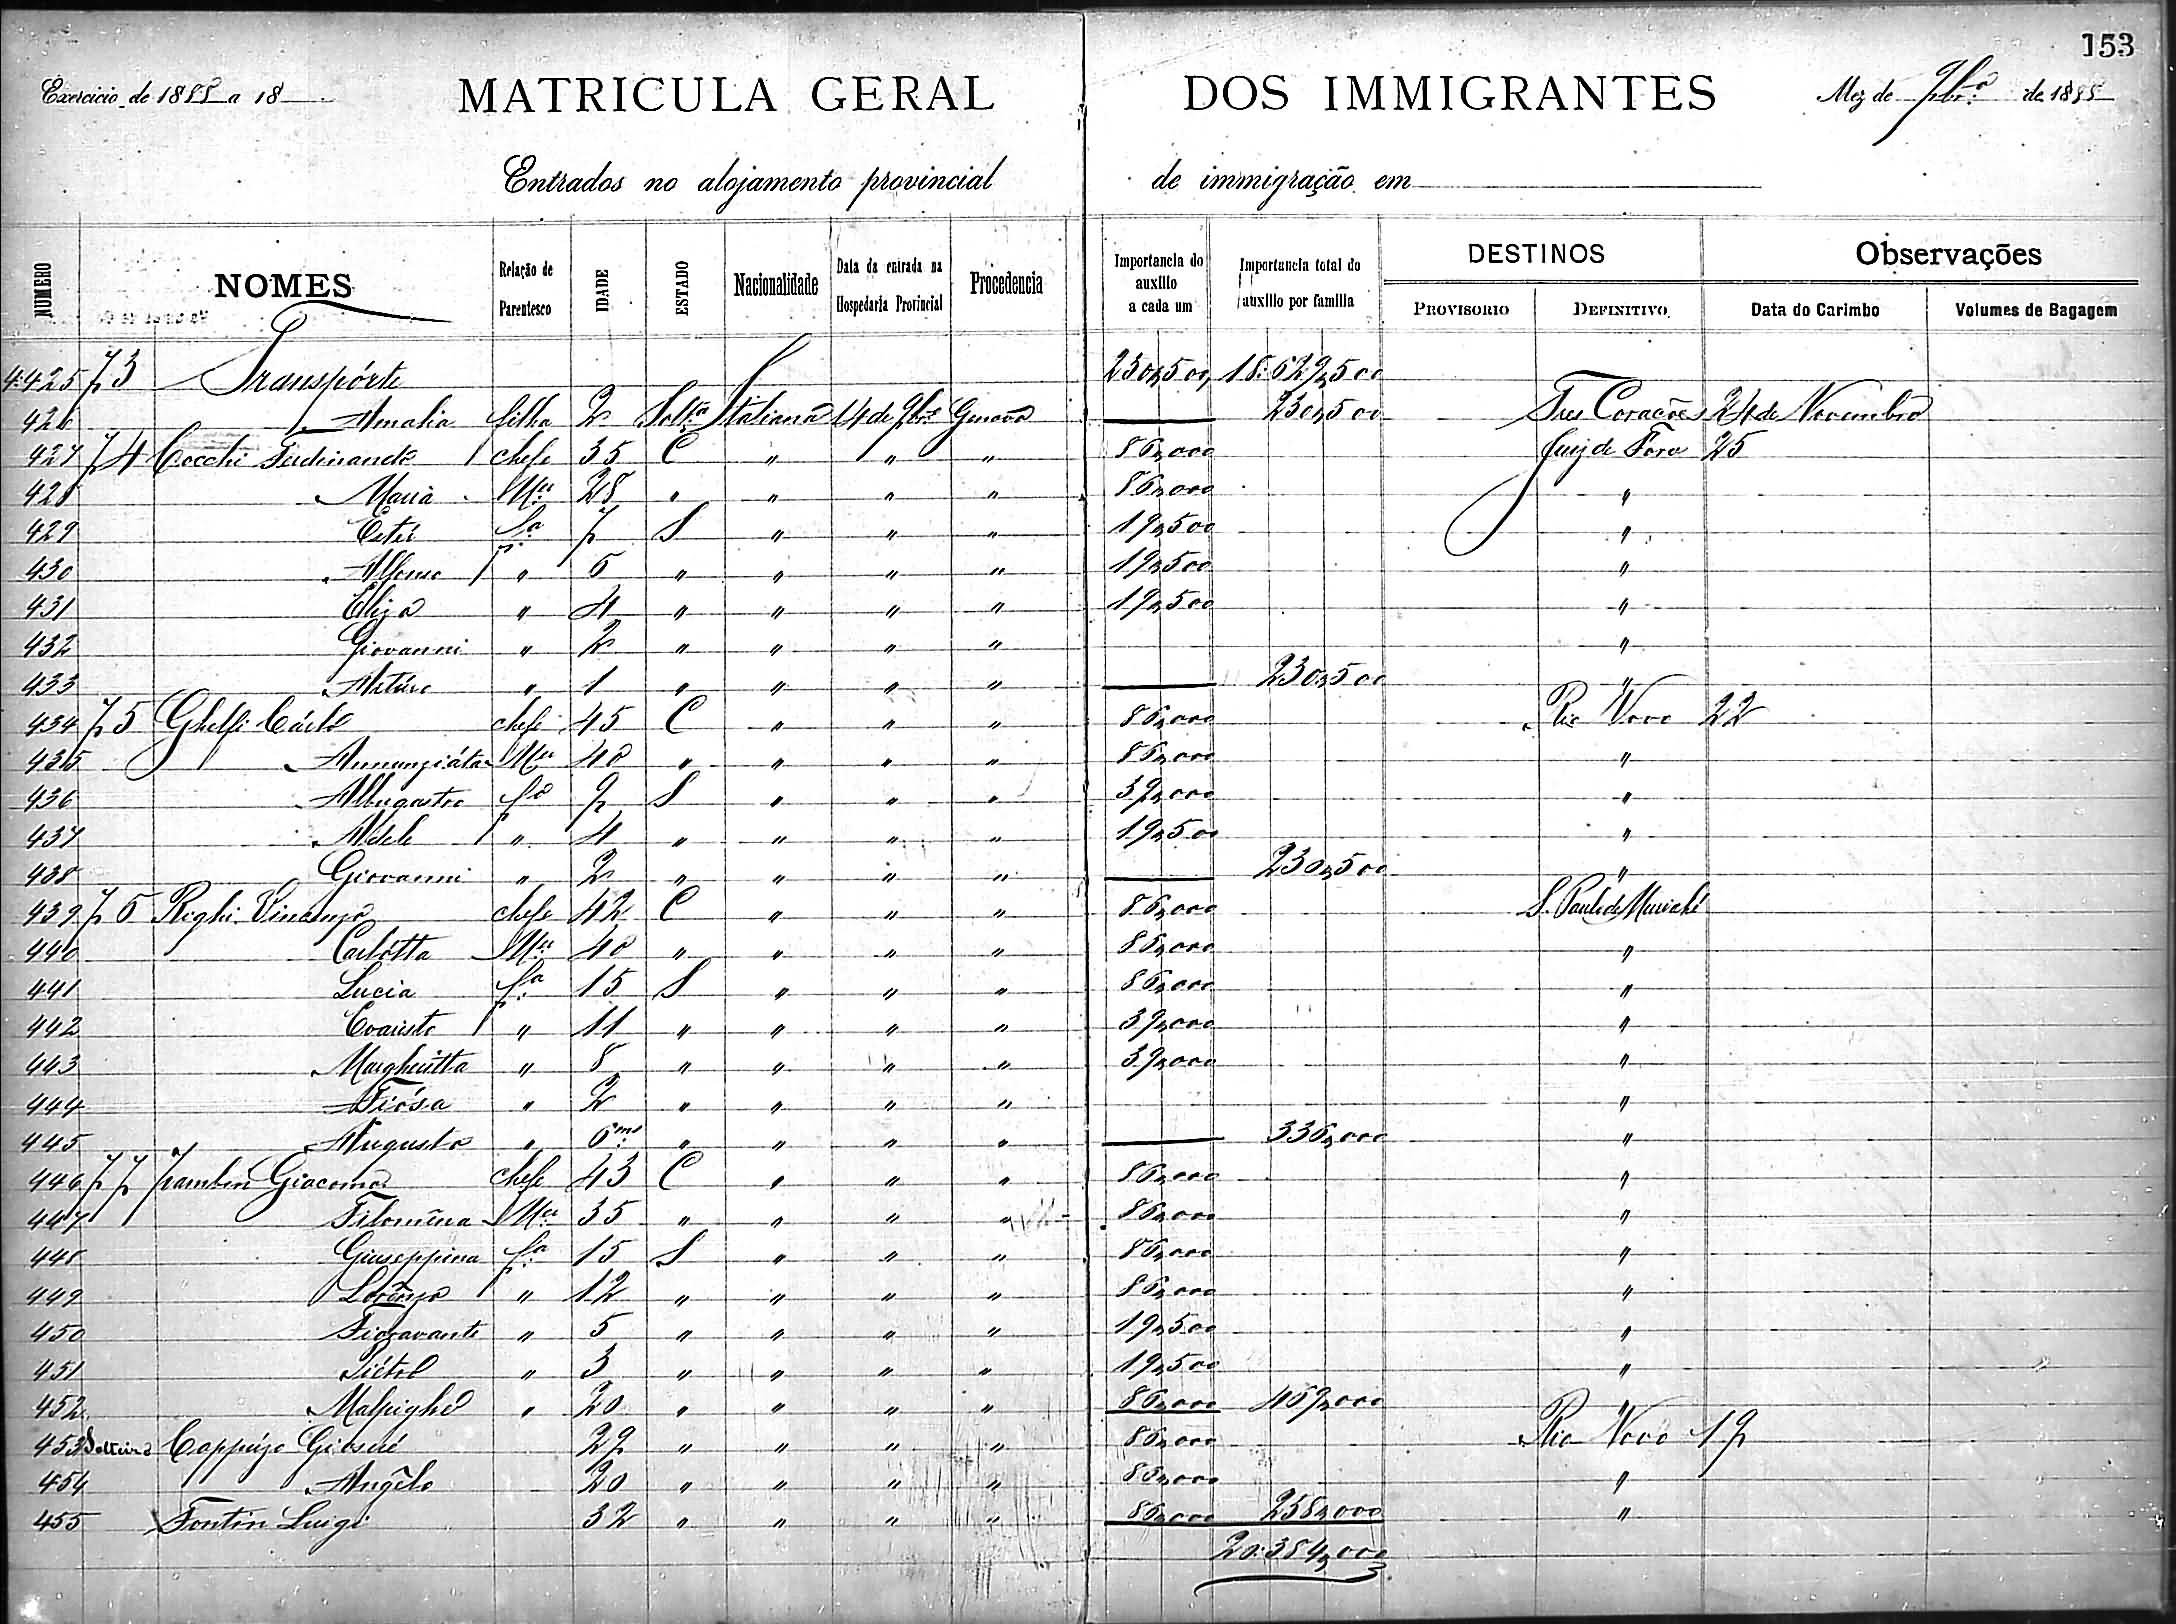 153
Exercicio de 1888 a 18
MATRICULA GERAL DOS IMMIGRANTES
Mez de 9bro de 1888
Entrados no alojamento provincial de immigração em
NUMERO NOMES Relação de Parentesco IDADE ESTADO Nacionalidade Data da entrada na Hospedaria Provincial Procedencia Importancia do auxilio a cada um Importancia total do auxilio por familia DESTINOS PROVISORIO DEFINITIVO Observações Data do Carimbo Volumes de Bagagem
4.425 73 Transpórte 230$500 18:629$500
426 Amalia filha 2 Soltra Italiana 14 de 9bro Genova 230$500 Tres Corações 24 de Novembro
427 74 Cocchi Ferdinando chefe 35 C " " " 86$000 Juiz de Fora 25
428 Maria Mer 28 " " " " 86$000 "
429 Estér fa 7 S " " " 19$500 "
430 Alfonso " 6 " " " " 19$500 "
431 Eliza " 4 " " " " 19$500 "
432 Giovanni " 2 " " " " "
433 Artúro " 1 " " " " 230$500 "
434 75 Ghelfi Cárlo chefe 45 C " " " 86$000 Rio Novo 22
435 Annunziáta Mer 40 " " " " 86$000 "
436 fo 9 S " " " 39$000 "
437 Adele " 4 " " " " 19$500 "
438 Giovanni " 2 " " " " 230$500 "
439 76 Righi Vincenzo chefe 42 C " " " 86$000 S. Paulo de Muriahé
440 Carlótta Mer 40 " " " " 86$000 "
441 Lucia fa 15 S " " " 86$000 "
442 Evaristo " 11 " " " " 39$000 "
443 Margheritta " 8 " " " " 39$000 "
444 " 2 " " " " "
445 Augusto " 6 ms " " " " 336$000 "
446 77 Giacomo chefe 43 C " " " 86$000 "
447 Filomêna Mer 35 " " " " 86$000 "
448 Giuseppina fa 15 S " " " 86$000 "
449 Lorênzo " 12 " " " " 86$000 "
450 Fioravante " 5 " " " " 19$500 "
451 " 3 " " " " 19$500 "
452 Malpighe " 20 " " " " 86$000 469$000 "
453 Solteiro Giosué 29 " " " " 86$000 Rio Novo 19
454 Angêlo 20 " " " " 86$000 "
455 Fontin Luigi 32 " " " " 86$000 258$000 "
20:384$000